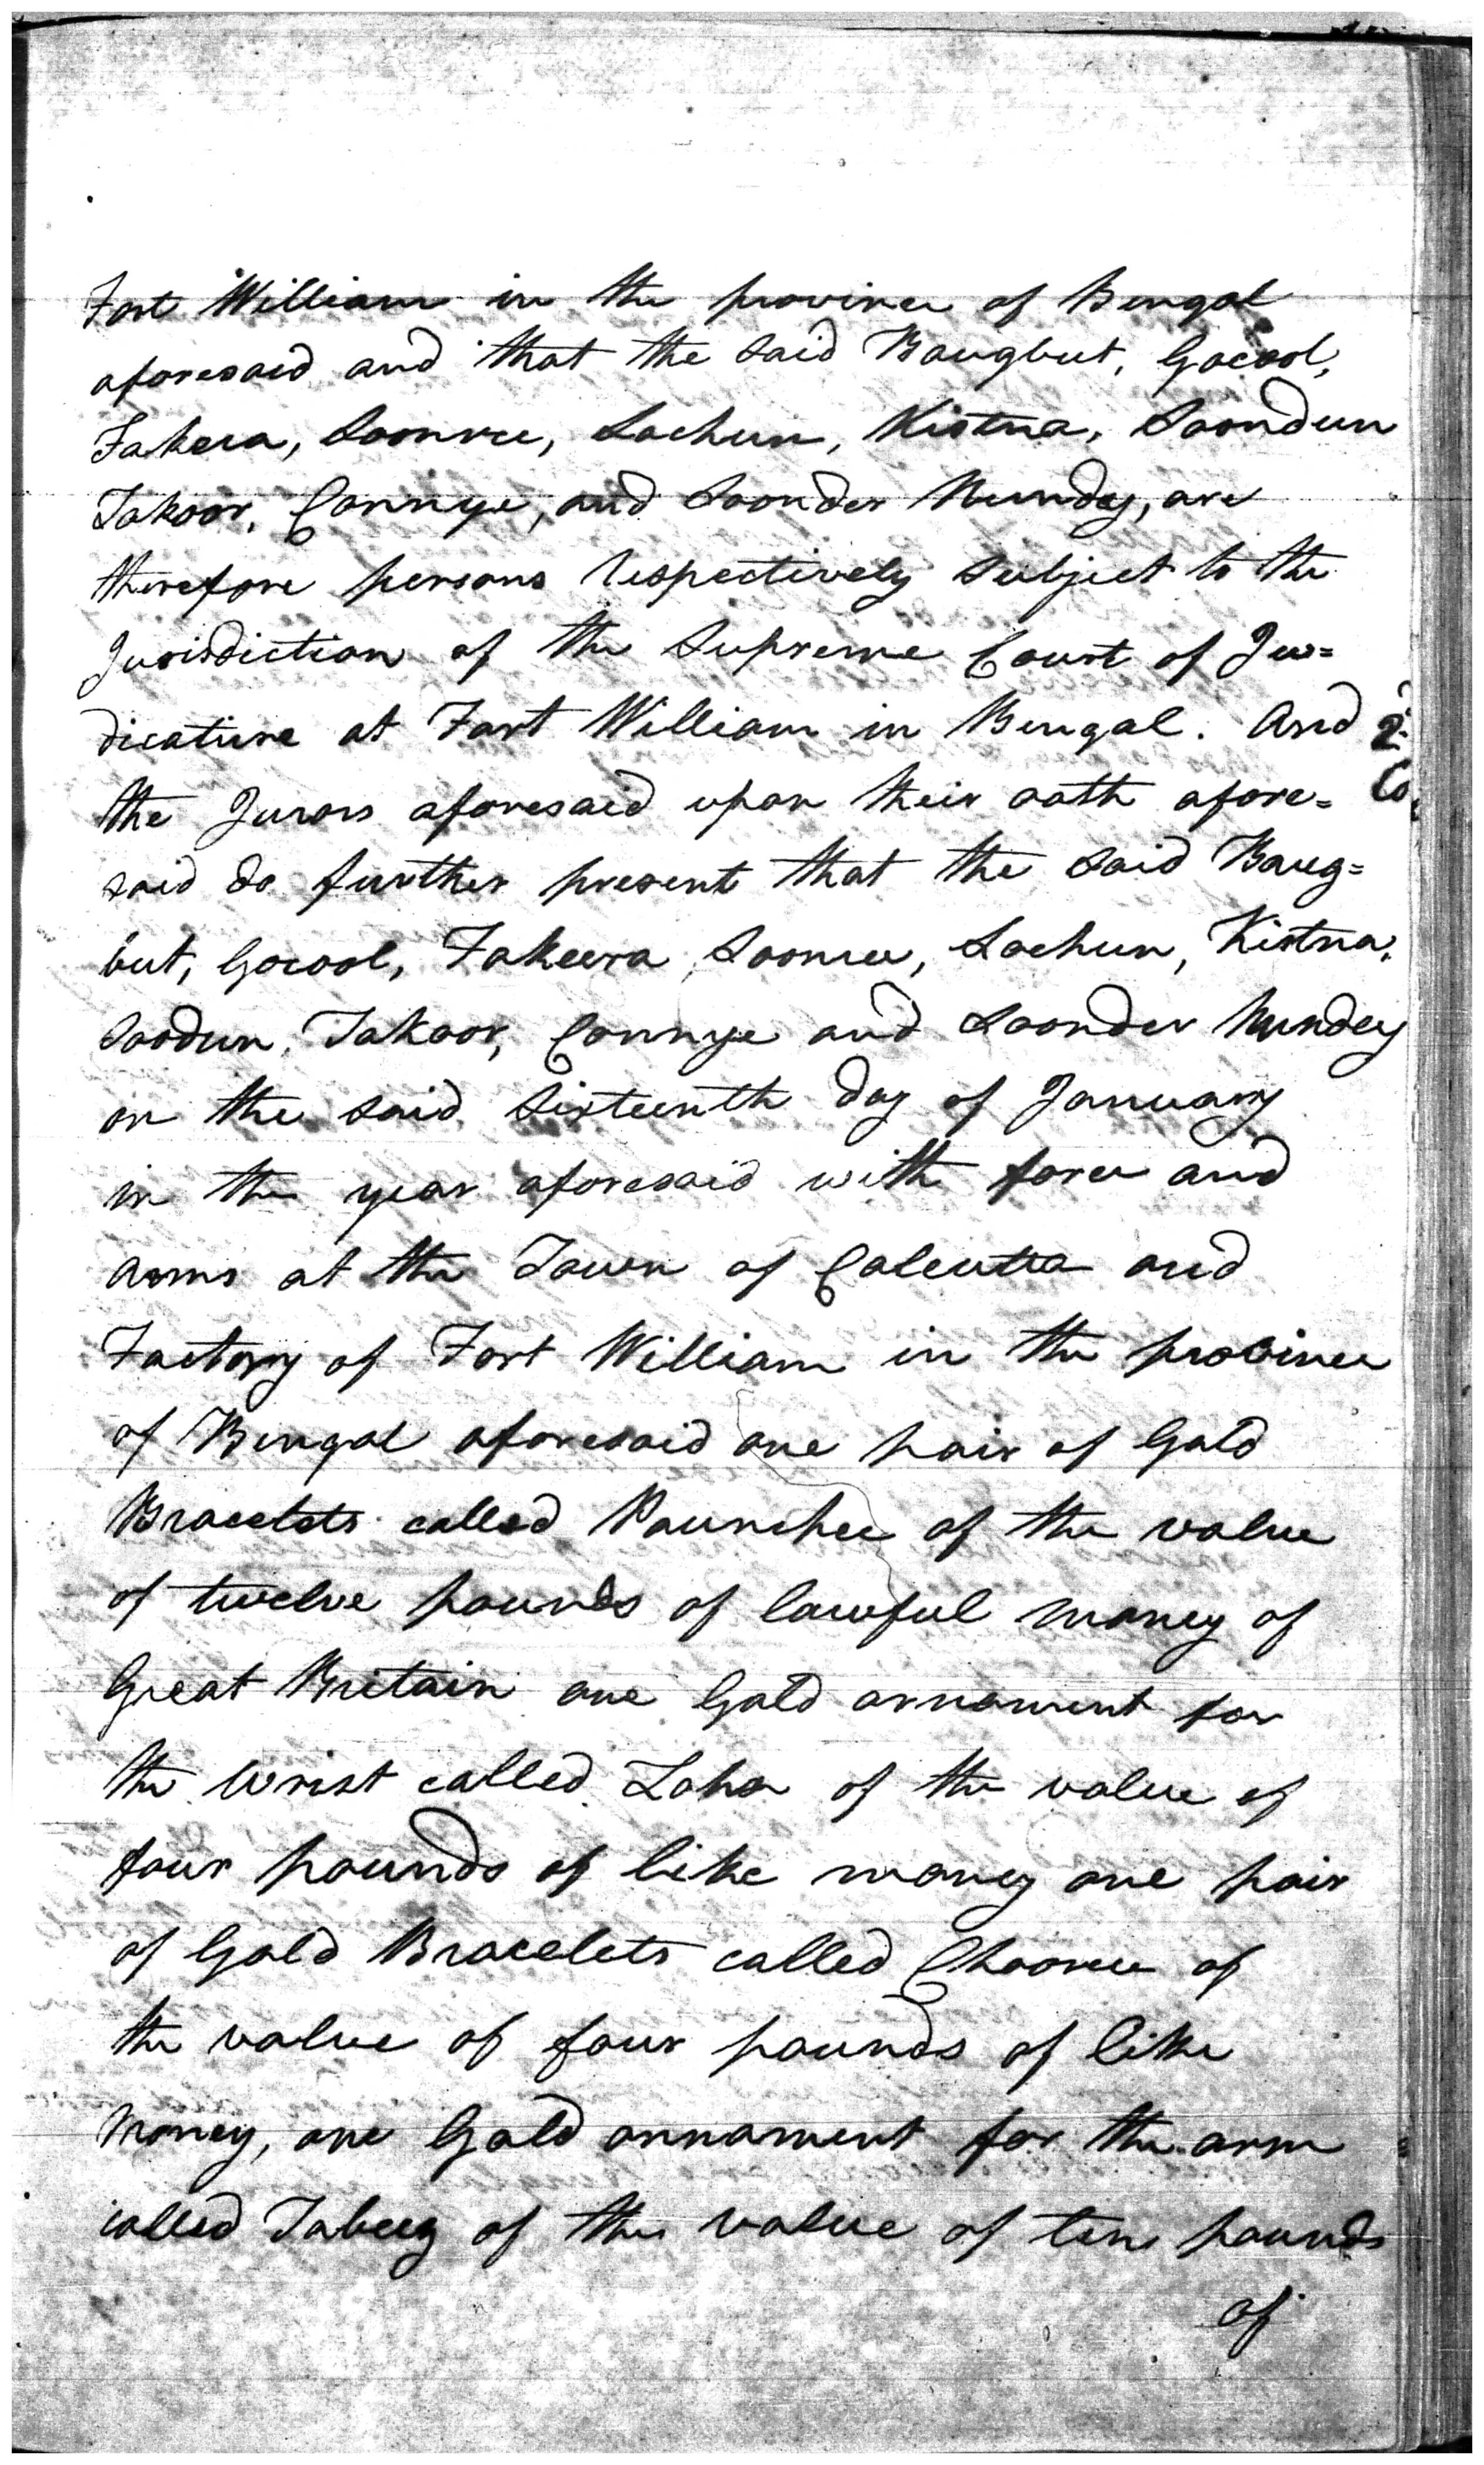 Fort William in the province of Bengal
aforesaid and that the said Baugbut, Gocool,
Fakera, Soonree, Lochun, Kistna, Soondun
Takoor, Connye, and Soonder Nundey, are
therefore persons respectively subject to the
Jurisdiction of the Supreme Court of Ju=
dicature at Fort William in Bengal. And
the Jurors aforesaid upon their oath afore=
said do further present that the said Baug=
but, Gocool, Fakeera, Soonree, Lochun, Kistna,
Soodun, Takoor, Connye and Soonder Nundey
on the said Sixteenth day of January
in the year aforesaid with force and
arms at the Town of Calcutta and
Factory of Fort William in the province
of Bengal aforesaid one pair of Gold
Bracelets called Pounchee of the value
of twelve pounds of lawful money of
Great Britain one Gold ornament for
the Wrist called Loha of the value of
four pounds of like money one pair
of Gold Bracelets called Chooree of
the value of four pounds of like
Money, one Gold ornament for the arm
called Tabeez of the value of ten pounds
of